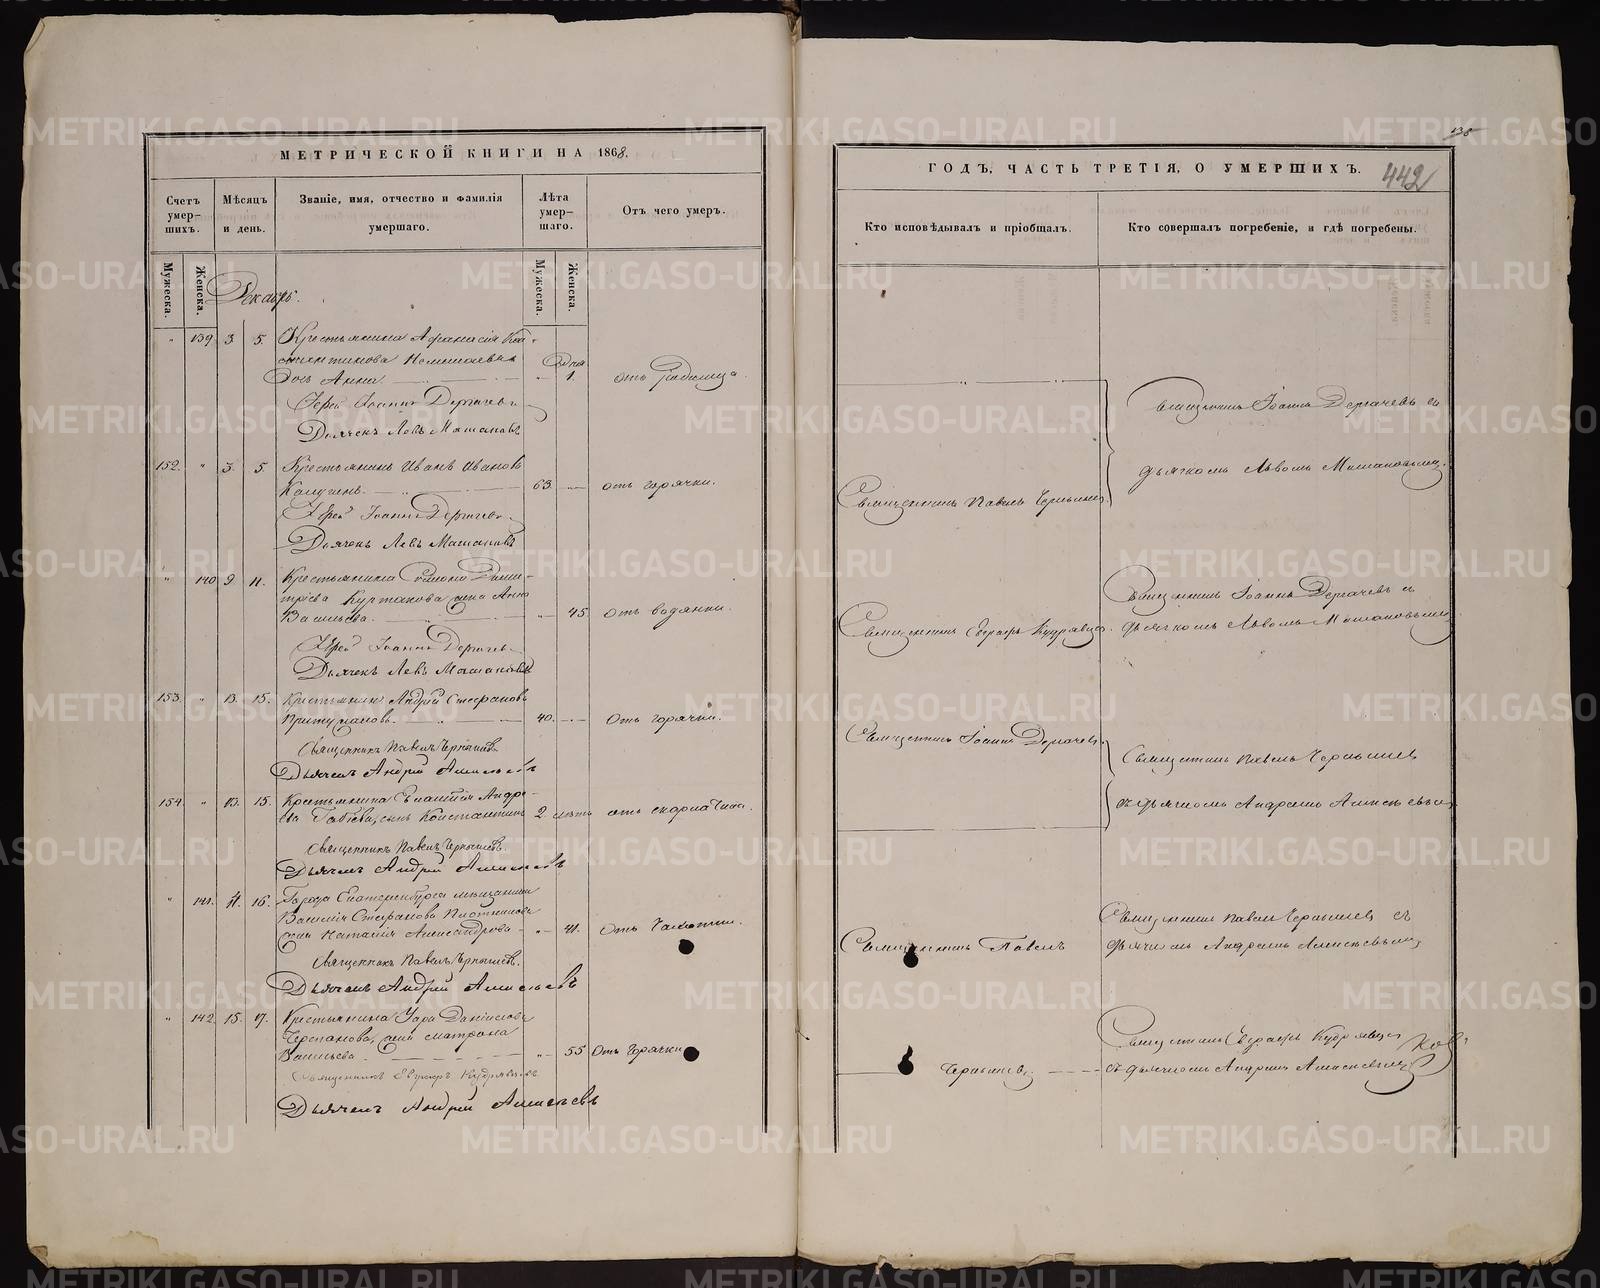 МЕТРИЧЕСКОЙ КНИГИ НА 1868.
Счетъ умер-шихъ.
Мѣсяцъ и день.
Званіе, имя, отчество и фамилія умершаго.
Лѣта умер-шаго.
Отъ чего умеръ.
Мужеска.
Женска.
Мужеска.
Женска.
Декабрь.
" 139 3 5. Крестьянина Афанасія Кон-
стантинова
дочь Анна. 1. отъ родимца.
Іерей Іоаннъ Дергачевъ
Дьячекъ Левъ Машановъ
152. " 3. 5. Крестьянинъ Иванъ Ивановъ
63. отъ горячки.
Іерей Іоаннъ Дергачевъ
Дьячекъ Левъ Машановъ
" 140 9. 11. Крестьянина Дими-
тріева жена Анна
Васильева. 45 отъ водянки.
Іерей Іоаннъ Дергачевъ
Дьячекъ Левъ Машановъ
153. " 13. 15. Крестьянинъ Андрей Стефановъ
40. отъ горячки.
Священникъ Павелъ Чернышевъ.
Дьячекъ Андрей Алексѣевъ
154. " 13. 15. Крестьянина Андре-
ева сынъ Константинъ 2 лѣтъ отъ скарлатины.
Священникъ Павелъ Чернышевъ.
Дьячекъ Андрей Алексѣевъ
" 141. 16. Города Екатеринбурга мѣщанина
Василія Стефанова Плотникова
жена Наталія Александрова 41. отъ чахотки.
Священникъ Павелъ Чернышевъ.
Дьячекъ Андрей Алексѣевъ
" 142. 15. 17. Крестьянина Даніилова
Черепанова, жена Матрона
Васильева 55 отъ горячки
Священникъ Евграфъ Кудрявцевъ
Дьячекъ Андрей Алексѣевъ
138
ГОДЪ, ЧАСТЬ ТРЕТІЯ, О УМЕРШИХЪ.
442
Кто исповѣдывалъ и пріобщалъ.
Кто совершалъ погребеніе, и гдѣ погребены.
Священникъ Іоаннъ Дергачевъ съ
дьячкомъ Львомъ Машановымъ.
Священникъ Павелъ Чернышевъ
Священникъ Іоаннъ Дергачевъ съ
Священникъ Евграфъ Кудрявцевъ.
дьячкомъ Львомъ Машановымъ
Священникъ Іоаннъ Дергачевъ.
Священникъ Павелъ Чернышевъ
съ дьячкомъ Андреемъ Алексѣевымъ
Священникъ Павелъ Чернышевъ съ
дьячкомъ Андреемъ Алексѣевымъ
Священникъ Павелъ
Священникъ Евграфъ Кудрявцевъ
Чернышевъ
съ дьячкомъ Андреемъ Алексѣевымъ
METRIKI.GASO-URAL.RU